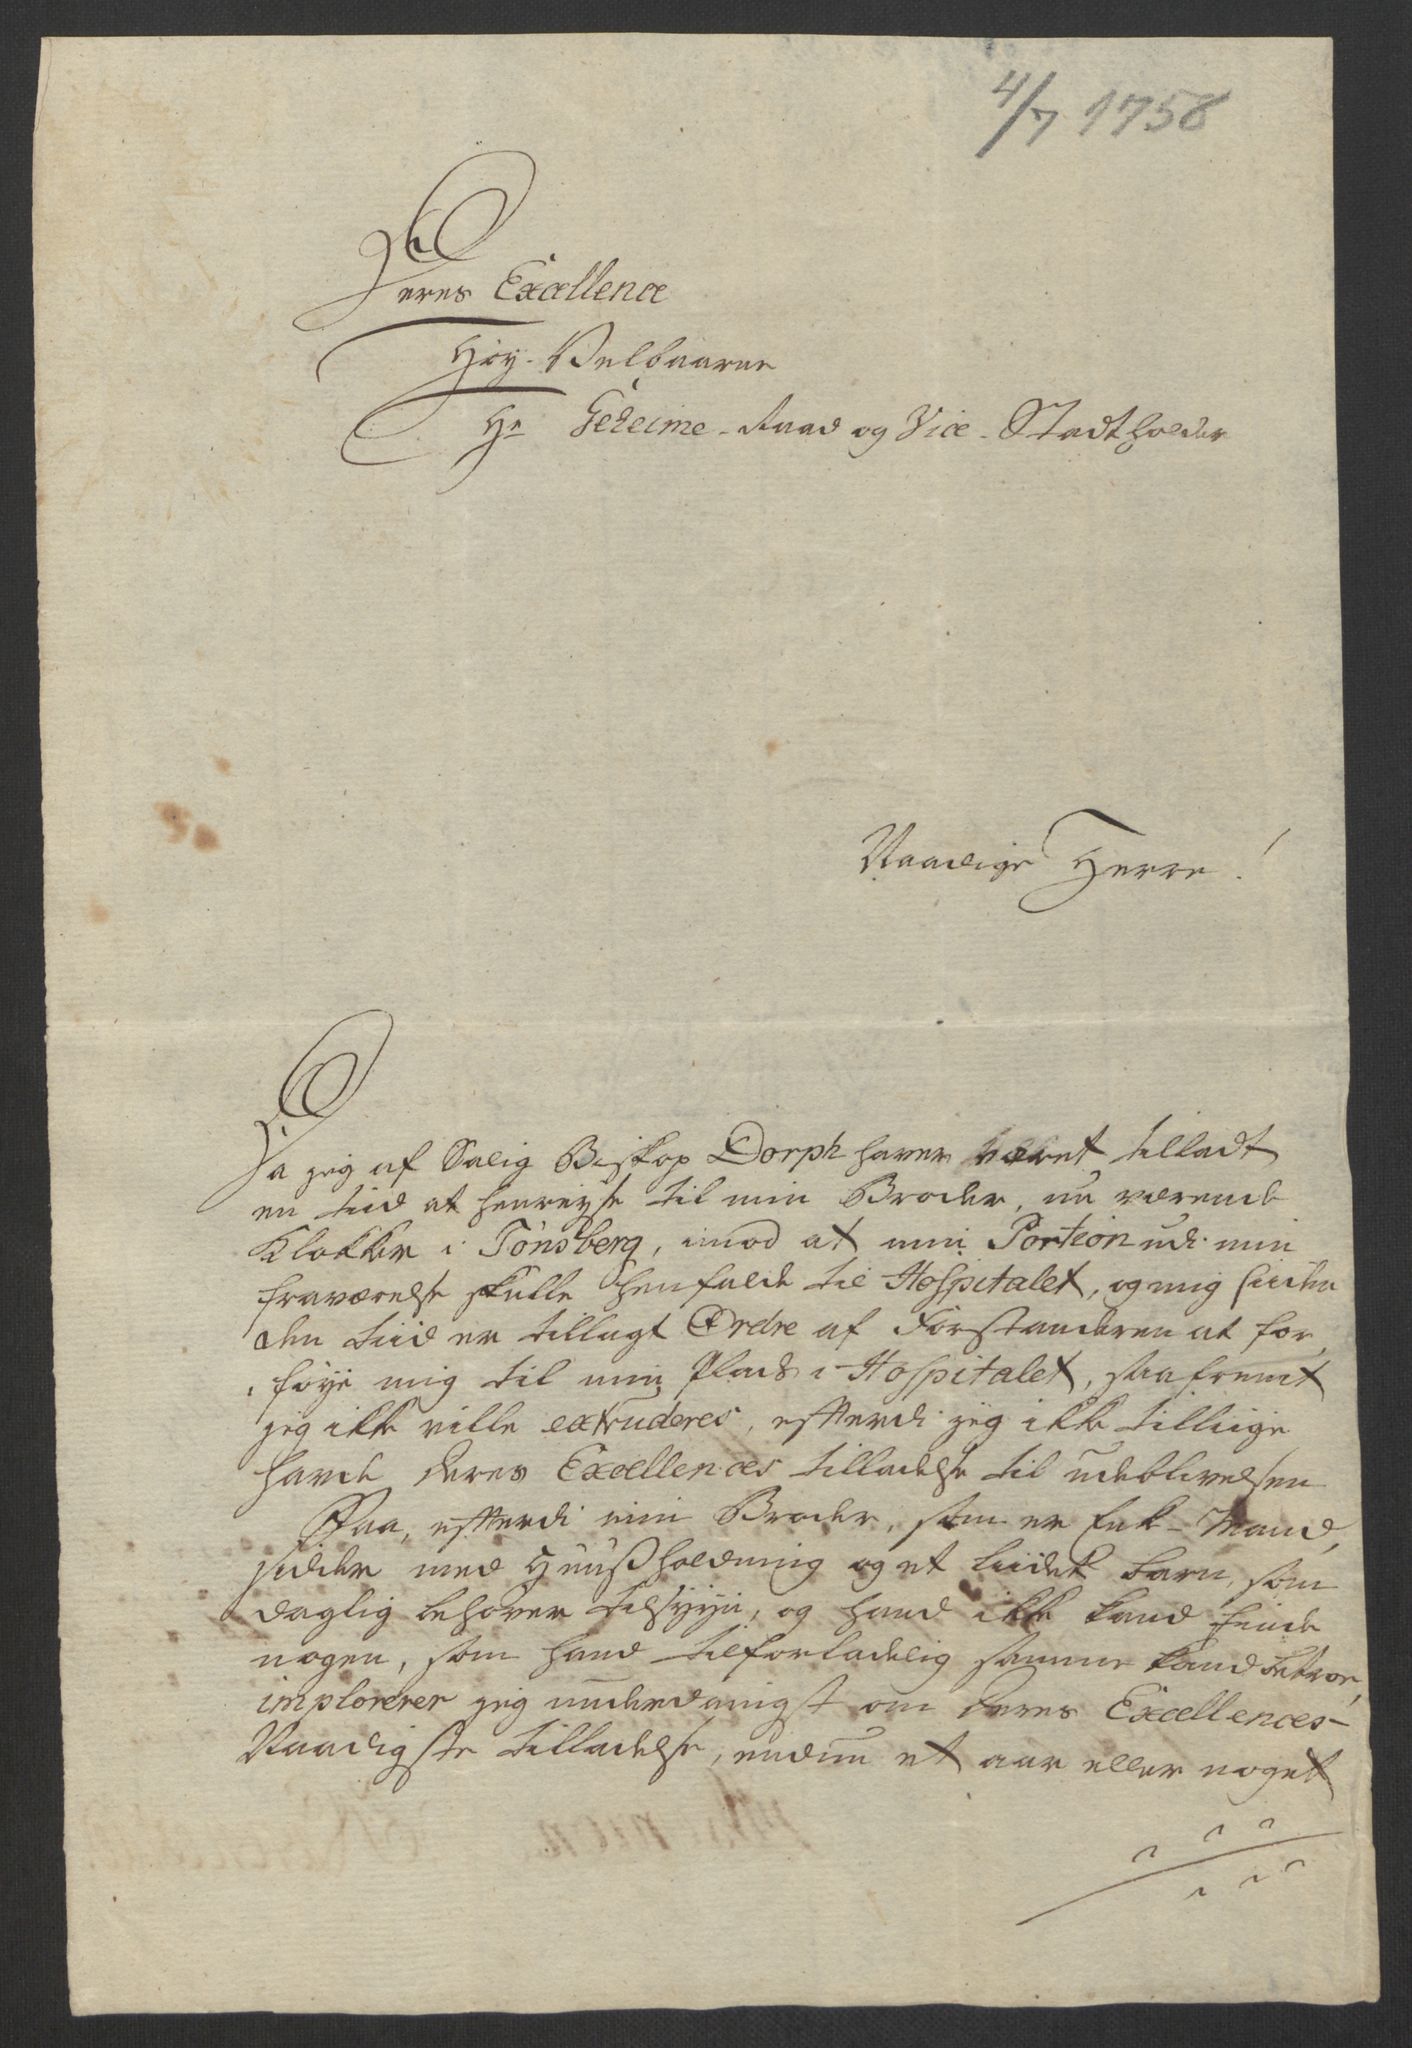 4/7 1758
Deres Excellence
Høy-Velbaarne
Hr Geheime-Raad og Vice-Stadtholder
Naadige Herre!
Da jeg af Salig Biskop Dorph haver været tilladt
en tiid at henreyse til min Broder, nu værende
Klokker i Tönsberg, imod at min Portion udi min
fraværelse skulle henfalde til Hospitalet, og mig siiden
den tiid er tillagt Ordre af Forstanderen at for,
føye mig til min Plads i Hospitalet, saafremt
jeg ikke ville extruderes, efterdi jeg ikke tilliige
havde Deres Excellences tilladelse til udeblivelsen
Saa, efterdi min Broder, som er Enke-Mand,
sidder med Huusholdning og et liidet barn, som
daglig behøver tilsyyn, og hand ikke kand finde
nogen, som hand tilforladelig samme kand betroe,
implorerer jeg underdanigst om Deres Excellences
Naadigste tilladelse, endnu et aar eller noget